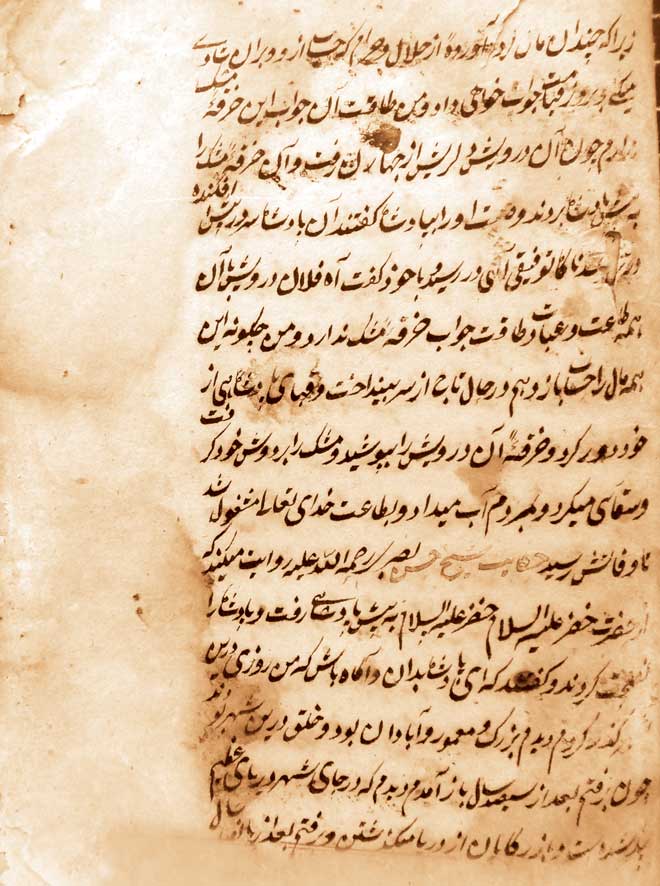 زیرا که چندان مال گرد آورده از حلال و حرام که حساب از و بران
میکنی و روز قیامت جواب خواهی داد و من طاقت آن جواب این خرقه
ندارم چون آن درویش از جهان رفت و آن خرقه و مشک را
پیش پادشاه بردند و وصیت او را بپادشاه گفتند آن پادشاه سر در پیش افکنده
ناگاه توفیق الهی در رسید و با خود گفت آه فلان درویش با آن
همه طاعت و عبادت طاقت جواب خرقه و مشک ندارد و من چگونه این
همه مال را حساب باز دهم در حال تاج از سر بینداخت و قبای پادشاهی از
خود دور کرد و خرقه آن درویش را بپوشید و مشک را بر دوش خود گرفت
و سقائی میکرد و بمردم آب میداد و بطاعت خدای تعالی مشغول شد
تا وفاتش رسید حکایت شیخ حسن بصری رحمه الله علیه روایت میکند که
از حضرت خضر علیه السلام خضر علیه السلام به پیش پادشاهی رفت و پادشاه را
نصیحت کردند و گفتند که ای پادشاه بدان و آگاه باش که من روزی درین
گذر کردم دیدم بزرگ و معمور و آبادان بود و خلق درین شهر بودند
چون برفتم بعد از سیصد سال باز آمدم دیدم که در جای شهر دریای عظیم
شده است و بازرگانان از دریا میگذشتن و رفتم بعد از سال